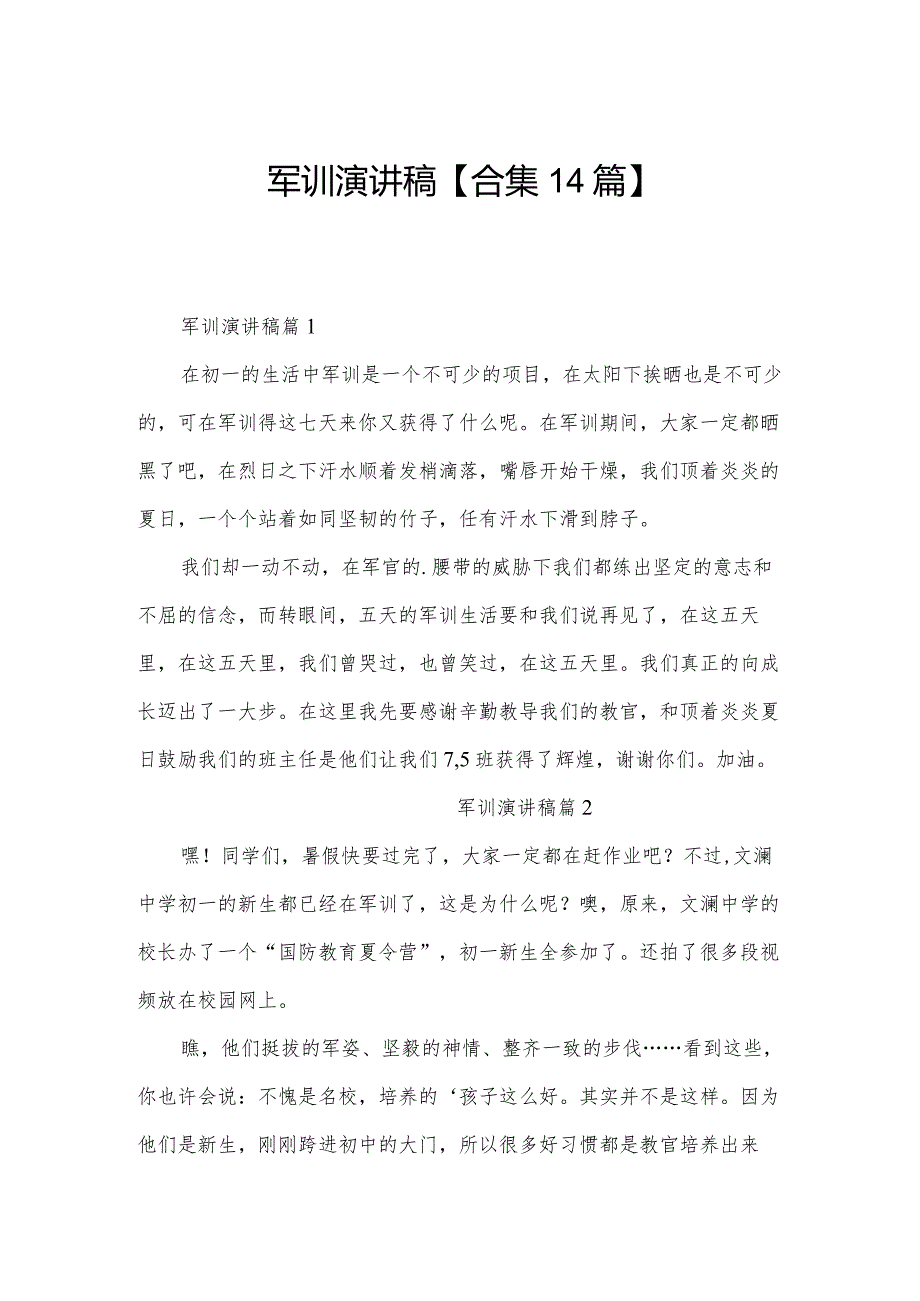 军训演讲稿【合集14篇】
军训演讲稿篇1
在初一的生活中军训是一个不可少的项目，在太阳下挨晒也是不可少
的，可在军训得这七天来你又获得了什么呢。在军训期间，大家一定都晒
黑了吧，在烈日之下汗水顺着发梢滴落，嘴唇开始干燥，我们顶着炎炎的
夏日，一个个站着如同坚韧的竹子，任有汗水下滑到脖子。
我们却一动不动，在军官的.腰带的威胁下我们都练出坚定的意志和
不屈的信念，而转眼间，五天的军训生活要和我们说再见了，在这五天
里，在这五天里，我们曾哭过，也曾笑过，在这五天里。我们真正的向成
长迈出了一大步。在这里我先要感谢辛勤教导我们的教官，和顶着炎炎夏
日鼓励我们的班主任是他们让我们7,5班获得了辉煌，谢谢你们。加油。
军训演讲稿篇2
嘿！同学们，暑假快要过完了，大家一定都在赶作业吧？不过,文澜
中学初一的新生都已经在军训了，这是为什么呢？噢，原来，文澜中学的
校长办了一个“国防教育夏令营”，初一新生全参加了。还拍了很多段视
频放在校园网上。
瞧，他们挺拔的军姿、坚毅的神情、整齐一致的步伐……看到这些，
你也许会说：不愧是名校，培养的‘孩子这么好。其实并不是这样。因为
他们是新生，刚刚跨进初中的大门，所以很多好习惯都是教官培养出来